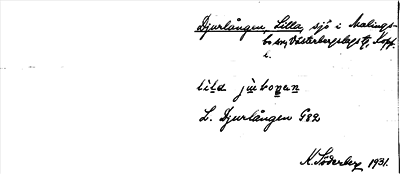 Djurlången, Lilla, sjö i Malings-
bo sn, Västerbergslags tg, Kopp.
l.
lila
L. Djurlången G82
K. Söderberg 1931.